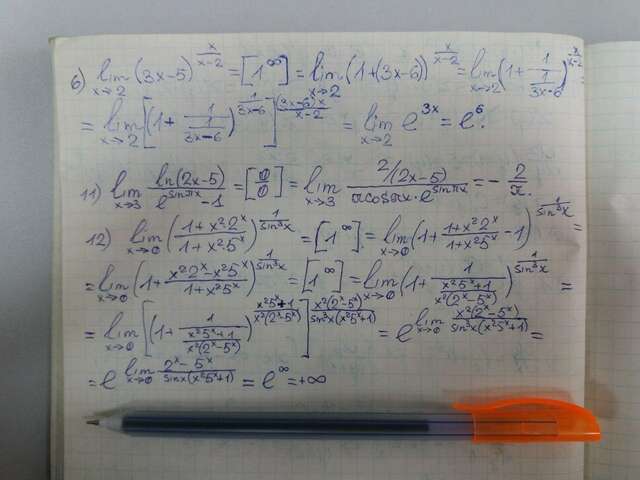 6) lim x→2 (3x-5)^(x/(x-2)) = [1^∞] = lim x→2 (1+(3x-6))^(x/(x-2)) = lim x→2 (1+1/(1/(3x-6)))^(x/(x-2))
= lim x→2 [(1+1/(1/(3x-6)))^(1/(3x-6))]^((3x-6)x/(x-2)) = lim x→2 e^(3x) = e^6.
11) lim x→3 ln(2x-5)/(e^(sinπx)-1) = [0/0] = lim x→3 (2/(2x-5))/(πcosπx·e^(sinπx)) = -2/π.
12) lim x→0 ((1+x²2^x)/(1+x²5^x))^(1/sin³x) = [1^∞] = lim x→0 (1+(1+x²2^x)/(1+x²5^x)-1)^(1/sin³x) =
= lim x→0 (1+(x²2^x-x²5^x)/(1+x²5^x))^(1/sin³x) = [1^∞] = lim x→0 (1+1/((x²5^x+1)/(x²(2^x-5^x))))^(1/sin³x) =
= lim x→0 [(1+1/((x²5^x+1)/(x²(2^x-5^x))))^((x²5^x+1)/(x²(2^x-5^x)))]^(x²(2^x-5^x)/(sin³x(x²5^x+1))) = e^(lim x→0 x²(2^x-5^x)/(sin³x(x²5^x+1))) =
= e^(lim x→0 (2^x-5^x)/(sinx(x²5^x+1))) = e^∞ = +∞